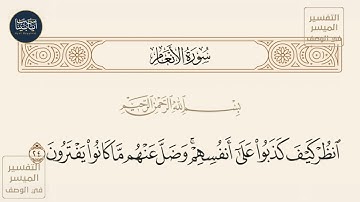 التفسير
الميسر
في الوصف
سُورَةُ الأَنْعَامِ
بِسْمِ اللَّهِ الرَّحْمَٰنِ الرَّحِيمِ
ٱنظُرْ كَيْفَ كَذَبُوا۟ عَلَىٰٓ أَنفُسِهِمْ ۚ وَضَلَّ عَنْهُم مَّا كَانُوا۟ يَفْتَرُونَ ٢٤
التفسير
الميسر
في الوصف